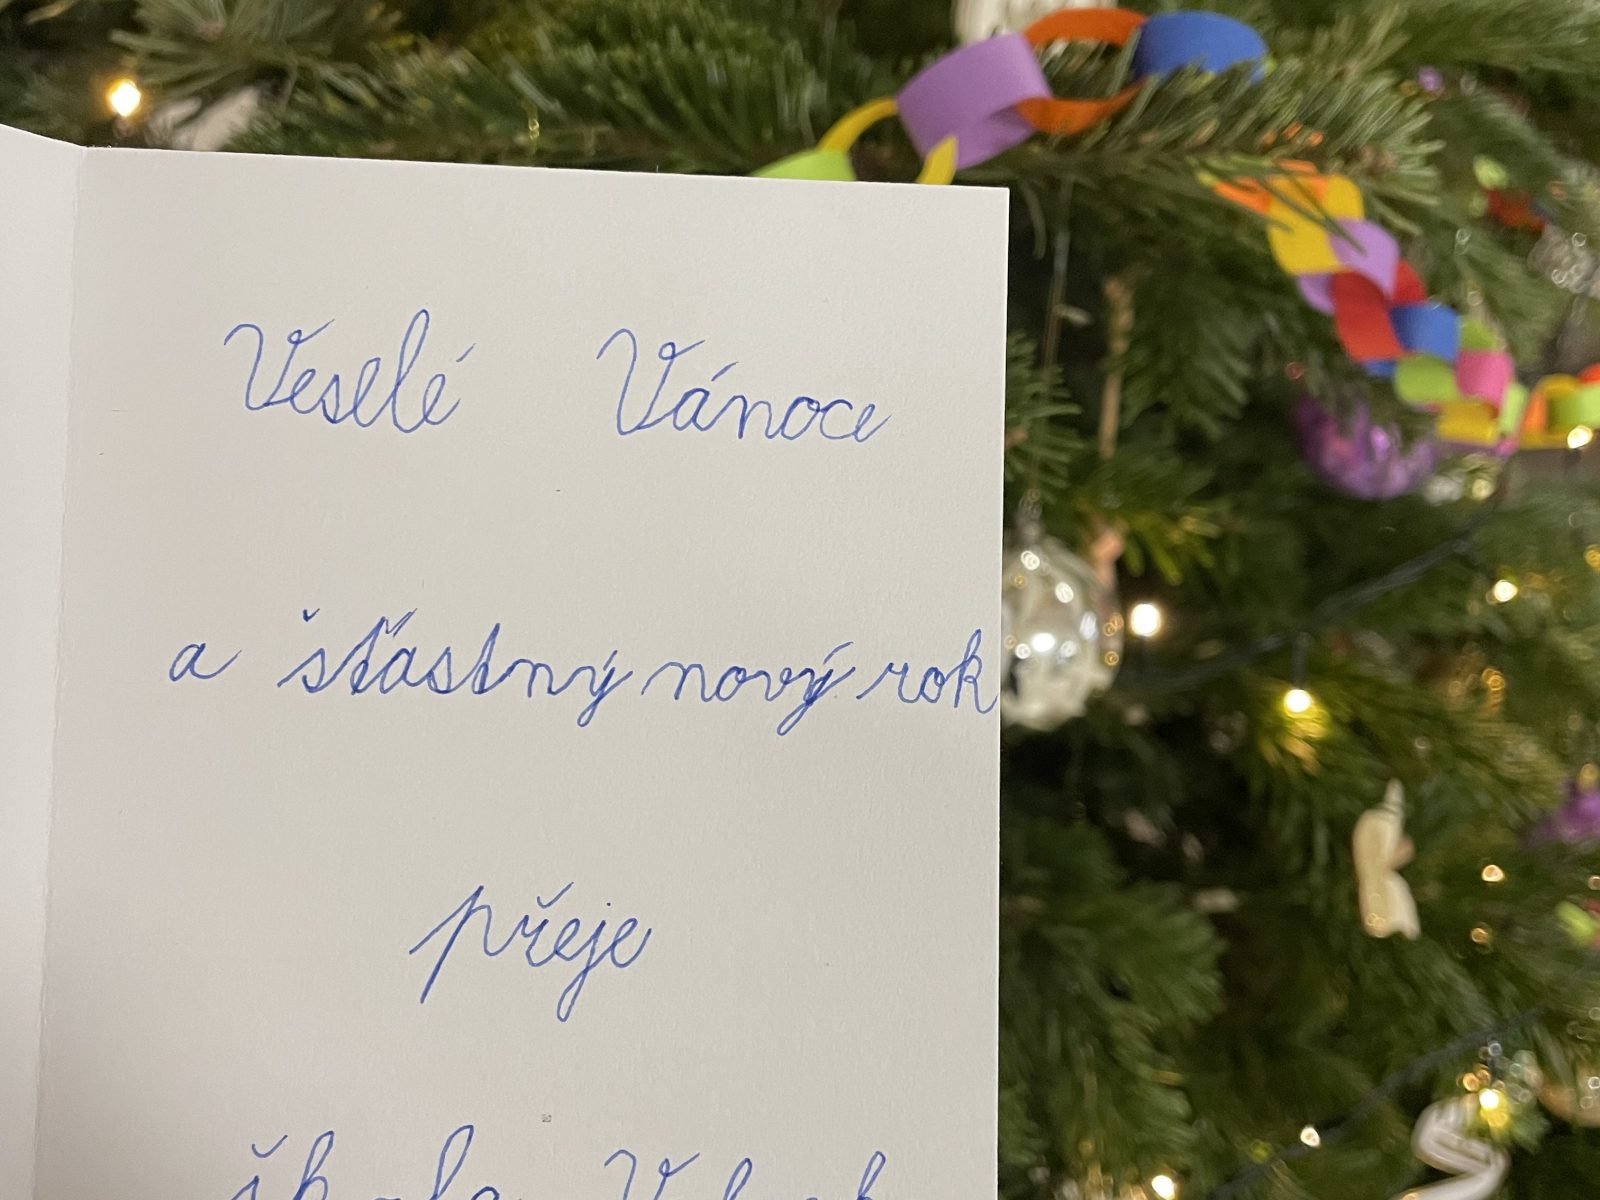 Veselé Vánoce
a šťastný nový rok
přeje
škola